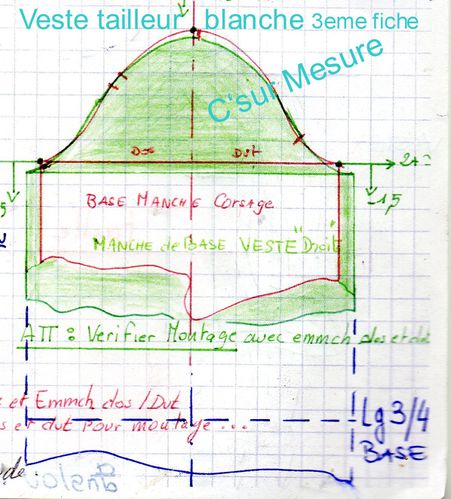 Veste tailleur blanche 3eme fiche
C'sur Mesure
Dos Dvt
1,5
BASE MANCHE Corsage
MANCHE de BASE VESTE "Droit"
ATT : Vérifier Montage avec emmch dos et dvt
et Emmch dos/Dvt
et dvt pour montage ...
Lg 3/4
BASE